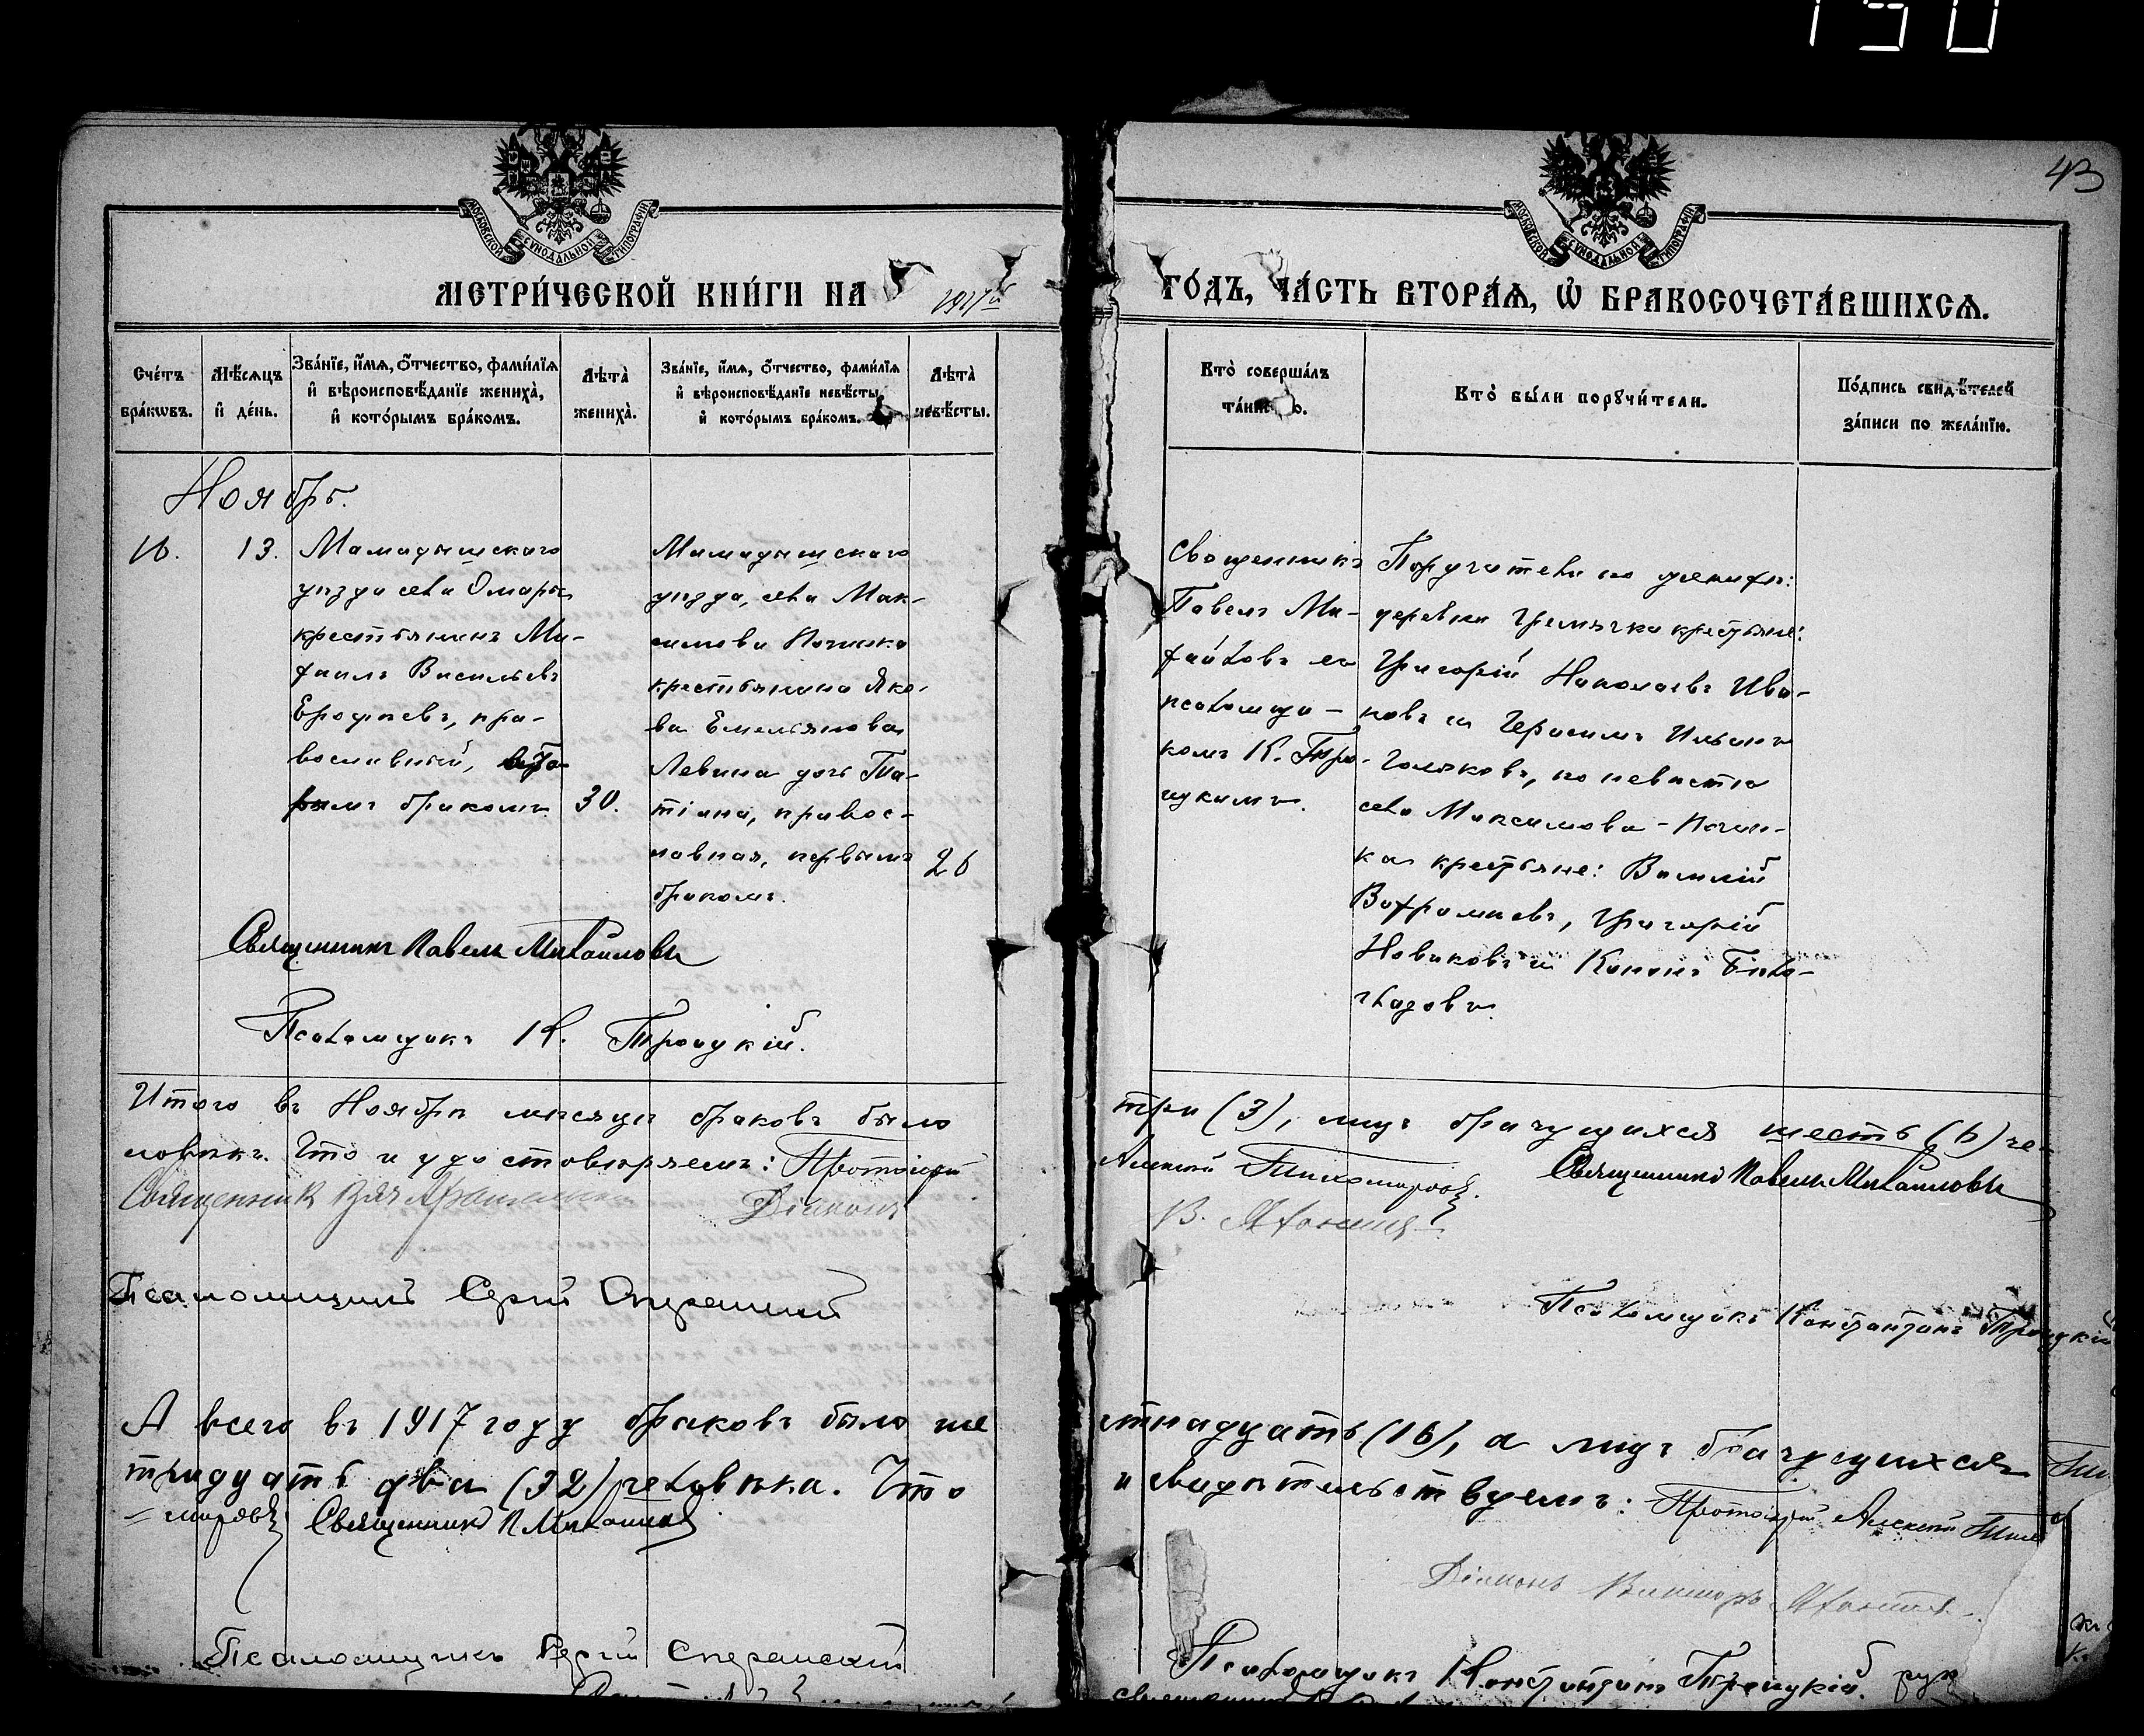 130
43
МОСКОВСКОЙ СѴНОДАЛЬНОЙ ТИПОГРАФІИ
МОСКОВСКОЙ СѴНОДАЛЬНОЙ ТИПОГРАФІИ
МЕТРИ́ЧЕСКОЙ КНИ́ГИ НА 1917й ГО́ДЪ, ЧА́СТЬ ВТОРА́Ѧ, Ѽ БРАКОСОЧЕТА́ВШИХСѦ.
Сче́тъ бра́кѡвъ.
Мѣ́сѧцъ и҆ де́нь.
Зва́нїе, и҆́мѧ, ѻ҆́тчество, фами́лїѧ и҆ вѣроисповѣ́данїе жениха̀, и҆ кото́рымъ бра́комъ.
Лѣта̀ жениха̀.
Зва́нїе, и҆́мѧ, ѻ҆́тчество, фами́лїѧ и҆ вѣроисповѣ́данїе невѣ́сты, и҆ кото́рымъ бра́комъ.
Лѣта̀ невѣ́сты.
Кто̀ соверша́лъ
Кто̀ бы́ли порꙋчи́тели.
По́дпись свидѣ́телей за́писи по жела́нїю.
Ноябрь.
16.
13.
Мамадышскаго
уѣзда села Омары
крестьянинъ Ми-
хаилъ Васильевъ
Ерофѣевъ, пра-
вославный, вто-
рымъ бракомъ.
30.
Мамадышскаго
уѣзда, села Мак-
симова Починка
крестьянина Яко-
ва Емельянова
Левина дочь Та-
тіана, правос-
лавная, первымъ
бракомъ.
26
Священникъ
Павелъ Ми-
хайловъ съ
псаломщи-
комъ К. Тро-
ицкимъ.
Поручители по женихѣ:
деревни Гремячка крестьяне:
Григорій Николаевъ Ива-
новъ и Герасимъ Ильинъ
Голяковъ, по невѣстѣ
села Максимова-Почин-
ка крестьяне: Василій
Вахрамѣевъ, Григорій
Новиковъ и Кононъ Бѣло-
глазовъ.
Священникъ Павелъ Михаиловъ
Псаломщикъ К. Троицкій.
Итого въ Ноябрѣ мѣсяцѣ браковъ было три (3), лицъ брачущихся шесть (6) че-
ловѣкъ. Что и удостовѣряемъ: Протоіерей Алексей Тихомировъ. Священникъ Павелъ Михаиловъ
Священникъ Діаконъ В.
Псаломщикъ Сергій Сперанскій
Псаломщикъ Константинъ Троицкій
А всего въ 1917 году браковъ было ше стнадцать (16), а лицъ брачущихся
тридцать два (32) человѣка. Что и свидѣтельствуемъ: Протоіерей Алексей Тихо
=мировъ Священникъ П. Михаиловъ
Діаконъ Викторъ
Псаломщикъ Сергій Сперанскій
Псаломщикъ Константинъ Троицкій. рук